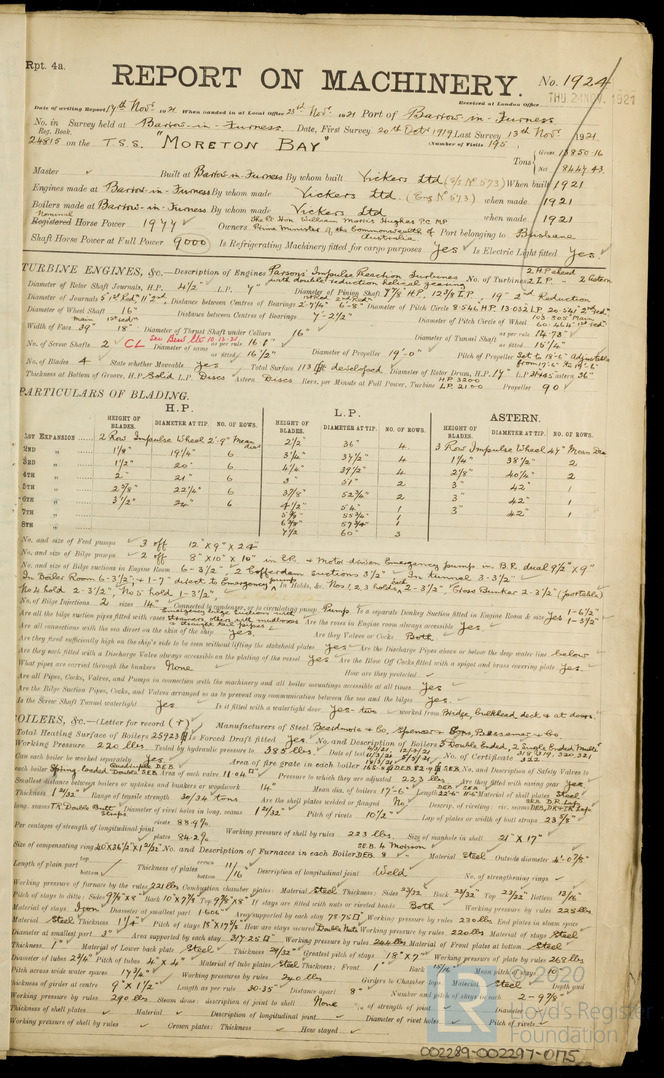 Rpt. 4a.
REPORT ON MACHINERY.
No. 1924
THU. 24 NOV. 1921
Received at London Office
Date of writing Report 17th Novr. 1921 When handed in at Local Office 23rd Novr. 1921 Port of Barrow-in-Furness
No. in Survey held at Barrow-in-Furness. Date, First Survey 20th Octr 1919 Last Survey 13th Novr 1921
Reg. Book.
24815 on the T.S.S. "MORETON BAY" (Number of Visits 195)
Tons Gross 13850.16
Net 8447.43
Master Built at Barrow-in-Furness By whom built Vickers Ltd (S/S No 573) When built 1921
Engines made at Barrow-in-Furness By whom made Vickers Ltd. (Eng No 573) when made 1921
Boilers made at Barrow-in-Furness By whom made Vickers Ltd when made 1921
Nominal
Registered Horse Power 1944 Owners Right Hon William Morris Hughes P.C. MP. Prime Minister of the Commonwealth of Australia Port belonging to Brisbane
Shaft Horse Power at Full Power 9000 Is Refrigerating Machinery fitted for cargo purposes Yes Is Electric Light fitted Yes.
TURBINE ENGINES, &c.—Description of Engines Parsons Impulse Reaction Turbines with double reduction helical gearing No. of Turbines 2 H.P. ahead 2 L.P. " 2 Astern
Diameter of Rotor Shaft Journals, H.P. 4 1/2" L.P. 7" Diameter of Pinion Shaft 7 7/8 H.P. 12 3/8 L.P. 19" 2nd Reduction
Diameter of Journals Distance between Centres of Bearings Diameter of Pitch Circle
Diameter of Wheel Shaft 16" Distance between Centres of Bearings 7'-2 1/2" Diameter of Pitch Circle of Wheel
Width of Face Diameter of Thrust Shaft under Collars 16" Diameter of Tunnel Shaft as per rule 14.73" as fitted 15 1/4"
No. of Screw Shafts 2 CL Diameter of same as per rule 16.1" as fitted 16 1/2" Diameter of Propeller 19'-0" Pitch of Propeller Set to 18'-6" adjustable from 17'-6" to 19'-6"
No. of Blades 4 State whether Moveable yes Total Surface 113 developed Diameter of Rotor Drum, H.P. 17" L.P. astern 36"
Thickness at Bottom of Groove, H.P. Solid L.P. Discs Astern Discs Revs. per Minute at Full Power, Turbine H.P. 3200 L.P. 2100 Propeller 90
PARTICULARS OF BLADING.
H.P. L.P. ASTERN.
HEIGHT OF BLADES. DIAMETER AT TIP. NO. OF ROWS. HEIGHT OF BLADES. DIAMETER AT TIP. NO. OF ROWS. HEIGHT OF BLADES. DIAMETER AT TIP. NO. OF ROWS.
1ST EXPANSION 2 Row Impulse Wheel 2'-9" Mean dia 2 1/2" 36" 4 3 Row Impulse Wheel 47" Mean Dia
2ND " 1 1/8" 19 1/4" 6 3 1/4" 37 1/2" 4 1 1/4" 38 1/2" 2
3RD " 1 1/2" 20" 6 4 1/4" 39 1/2" 4 2 1/8" 40 1/4" 2
4TH " 2" 21" 6 3" 51" 2 3" 42" 1
5TH " 2 5/8" 22 1/4" 6 3 7/8" 52 3/4" 2 3" 42" 1
6TH " 3 1/2" 24" 6 4 1/2" 54" 1 3" 42" 1
7TH "
8TH " 7 1/2 60" 3
No. and size of Feed pumps 3 off 12" x 9" x 24"
No. and size of Bilge pumps 2 off 8" x 10" x 10" in E.R. + Motor driven Emergency pump in B.R. dual 9 1/2" x 9"
No. and size of Bilge suctions in Engine Room 6 - 3 1/2", 2 Cofferdam suctions 3 1/2" In tunnel 3 - 3 1/2"
In Boiler Room 6 - 3 1/2"; + 1 - 7" direct to Emergency pump In Holds, &c. Nos 1 2 3 holds each 2 - 3 1/2", Cross Bunker 2 - 2 1/2" (portable)
No 4 hold 2 - 3 1/2", No 5 hold 1 - 3 1/2",
No. of Bilge Injections 2 sizes 14" Connected to condenser, or to circulating pump Pump Is a separate Donkey Suction fitted in Engine Room & size Yes 1 - 6 1/2" 1 - 3 1/2"
Are all the bilge suction pipes fitted with roses Emergency bilge suctions with strainers, others with mudboxes & straight tail pipes Are the roses in Engine room always accessible Yes
Are all connections with the sea direct on the skin of the ship Yes. Are they Valves or Cocks Both
Are they fixed sufficiently high on the ship's side to be seen without lifting the stokehold plates Yes Are the Discharge Pipes above or below the deep water line below
Are they each fitted with a Discharge Valve always accessible on the plating of the vessel Yes Are the Blow Off Cocks fitted with a spigot and brass covering plate Yes.
What pipes are carried through the bunkers None How are they protected
Are all Pipes, Cocks, Valves, and Pumps in connection with the machinery and all boiler mountings accessible at all times Yes
Are the Bilge Suction Pipes, Cocks, and Valves arranged so as to prevent any communication between the sea and the bilges Yes.
Is the Screw Shaft Tunnel watertight Yes Is it fitted with a watertight door Yes - two worked from Bridge, bulkhead deck & at doors.
BOILERS, &c.—(Letter for record (r)) Manufacturers of Steel Beardmore & Co, Spencer & Sons, Bessemer & Co.
Total Heating Surface of Boilers 25923 Is Forced Draft fitted Yes. No. and Description of Boilers 3 Double Ended, 2 Single Ended Multi
Working Pressure 220 lbs Tested by hydraulic pressure to 385 lbs Date of test No. of Certificate 318, 319, 320, 321 322
Can each boiler be worked separately Yes Area of fire grate in each boiler No. and Description of Safety Valves to
each boiler Spring loaded Area of each valve 11.04 Pressure to which they are adjusted 223 lbs Are they fitted with easing gear Yes
Smallest distance between boilers or uptakes and bunkers or woodwork 14" Mean dia. of boilers 17'-6" Length Material of shell plates Steel
Thickness 1 21/32" Range of tensile strength 30/34 tons Are the shell plates welded or flanged No Descrip. of riveting: cir. seams
long. seams T.R. Double Butt Straps Diameter of rivet holes in long. seams 1 21/32" Pitch of rivets 10 1/2" Lap of plates or width of butt straps 23 5/8"
Per centages of strength of longitudinal joint rivets 88.9% plates 84.2% Working pressure of shell by rules 223 lbs. Size of manhole in shell 21" x 17"
Size of compensating ring No. and Description of Furnaces in each Boiler Material Steel Outside diameter 4'-0 7/8"
Length of plain part top bottom Thickness of plates crown bottom 11/16" Description of longitudinal joint Weld No. of strengthening rings
Working pressure of furnace by the rules 221 lbs Combustion chamber plates: Material Steel Thickness: Sides 23/32 Back 23/32 Top 23/32 Bottom 13/16
Pitch of stays to ditto: Sides Back Top If stays are fitted with nuts or riveted heads Both Working pressure by rules 225 lbs
Material of stays Iron Diameter at smallest part 1.606" Area supported by each stay 75.75 Working pressure by rules 230 lbs End plates in steam space
Material Steel Thickness 1 1/4" Pitch of stays 18" x 17 1/2" How are stays secured Double Nuts Working pressure by rules 220 lbs Material of stays Steel
Diameter at smallest part 3" Area supported by each stay 317.25 Working pressure by rules 244 lbs Material of Front plates at bottom Steel
Thickness 1" Material of Lower back plate Steel Thickness 29/32" Greatest pitch of stays 18" x 7" Working pressure of plate by rules 268 lbs
Diameter of tubes 2 3/4" Pitch of tubes 4" x 4" Material of tube plates Steel Thickness: Front 1" Back 15/16" Mean pitch of stays 10"
Pitch across wide water spaces 17 3/4" Working pressures by rules 240 lbs Girders to Chamber tops: Material Steel Depth and
thickness of girder at centre 9" x 1 1/2" Length as per rule 30.35" Distance apart 8" Number and pitch of stays in each 2 - 9 7/8"
Working pressure by rules 290 lbs Steam dome: description of joint to shell None % of strength of joint Diameter
Thickness of shell plates Material Description of longitudinal joint Diameter of rivet holes Pitch of rivets
Working pressure of shell by rules Crown plates: Thickness How stayed
LR
© 2020
Lloyd's Register
Foundation
002289-002297-0175